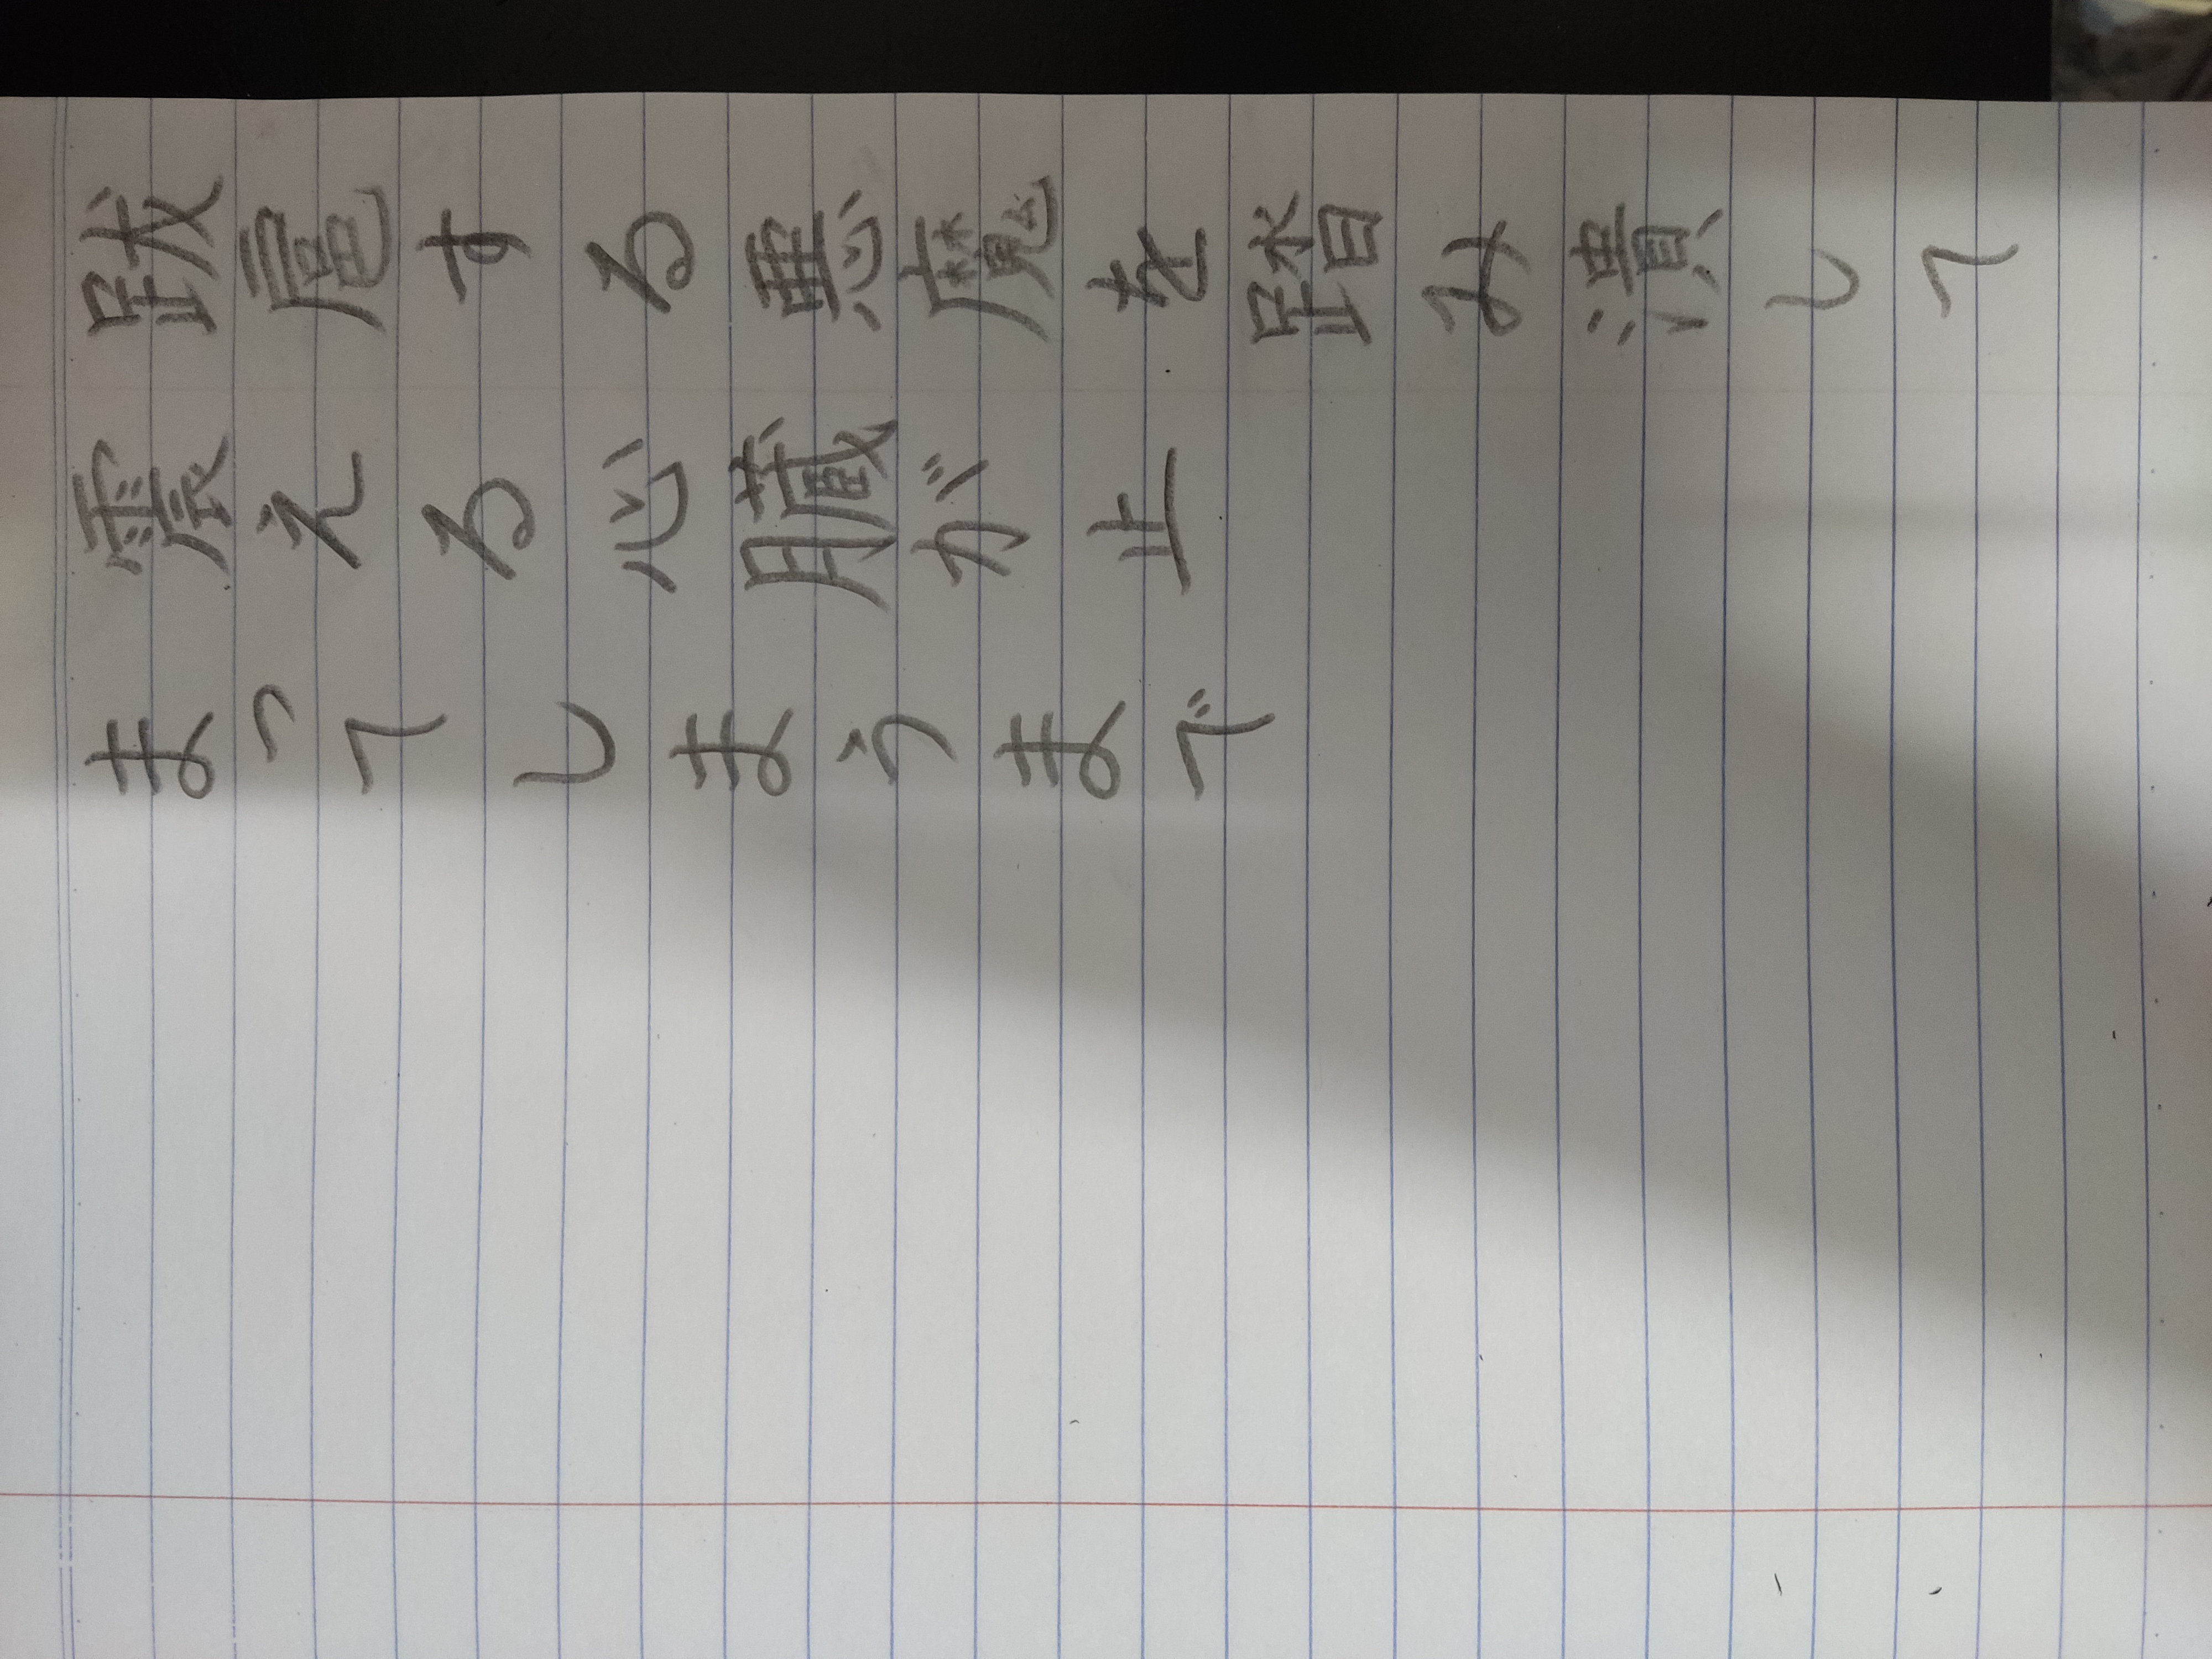 跋扈する悪魔を踏み潰して
震える心臓が止
まってしまうまで